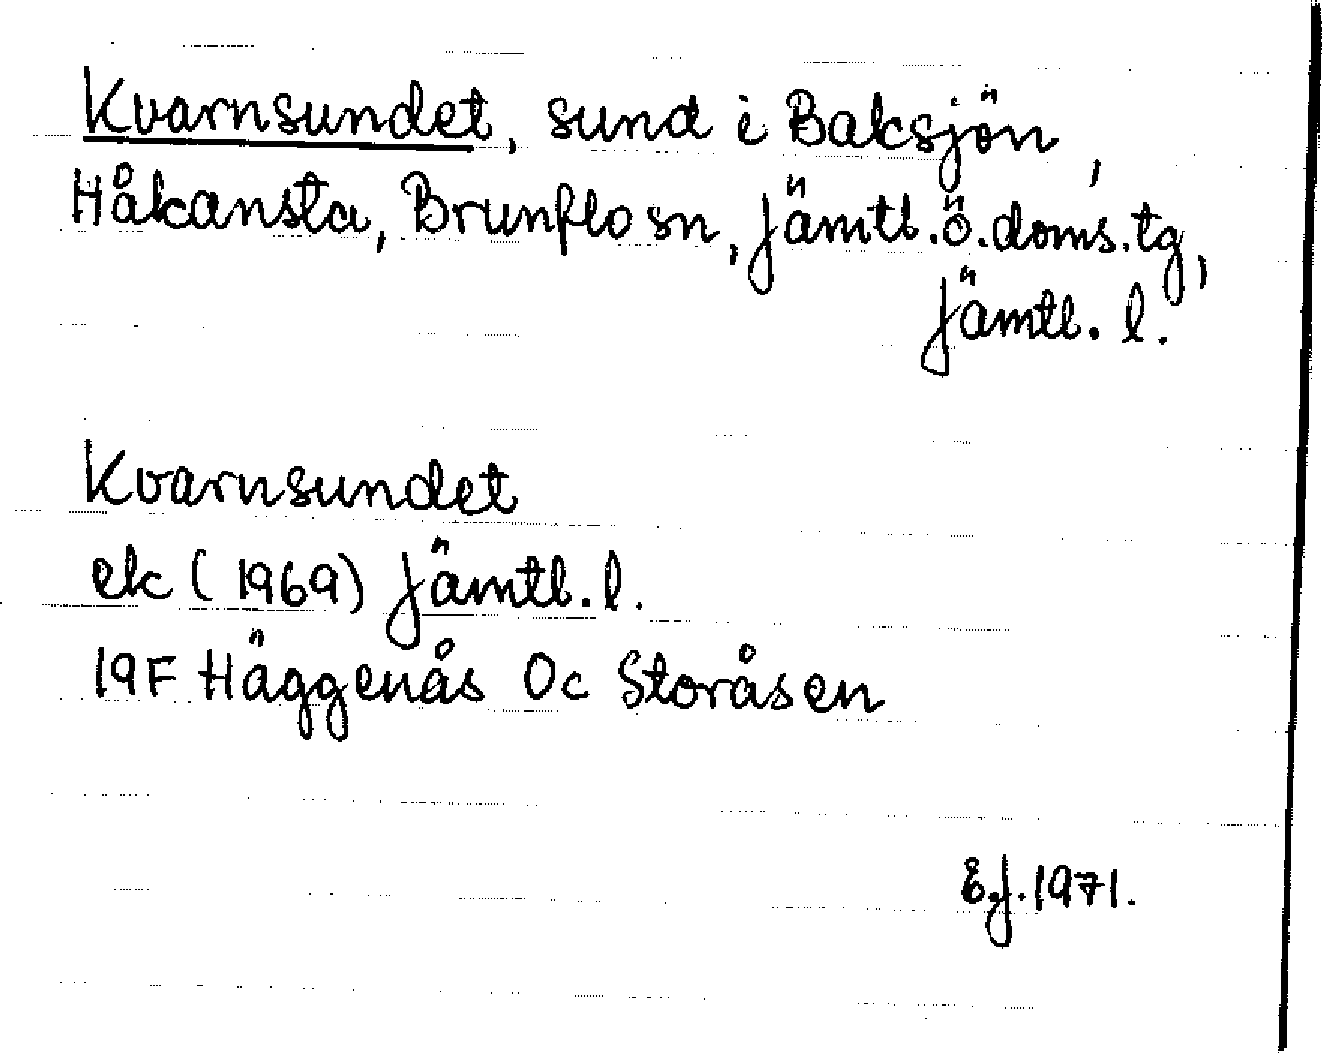 Kvarnsundet, sund i Baksjön,
Håkansta, Brunflo sn, Jämtl.ö.doms.tg,
Jämtl. l.
Kvarnsundet
ek (1969) Jämtl.l.
19F Häggenås 0c Storåsen
E.J. 1971.